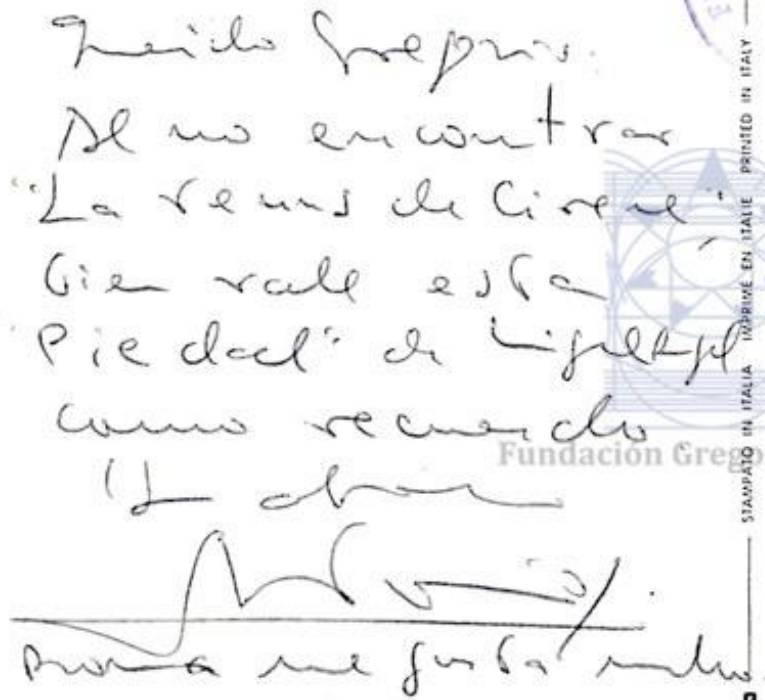 Querido Gregorio.
Al no encontrar
"La Venus de Cirene"
bien vale esta
"Piedad" de Miguel Angel
como recuerdo.
Un abrazo
Roma me gusta mucho.
Fundación Grego
STAMPATO IN ITALIA IMPRIMÉ EN ITALIE PRINTED IN ITALY